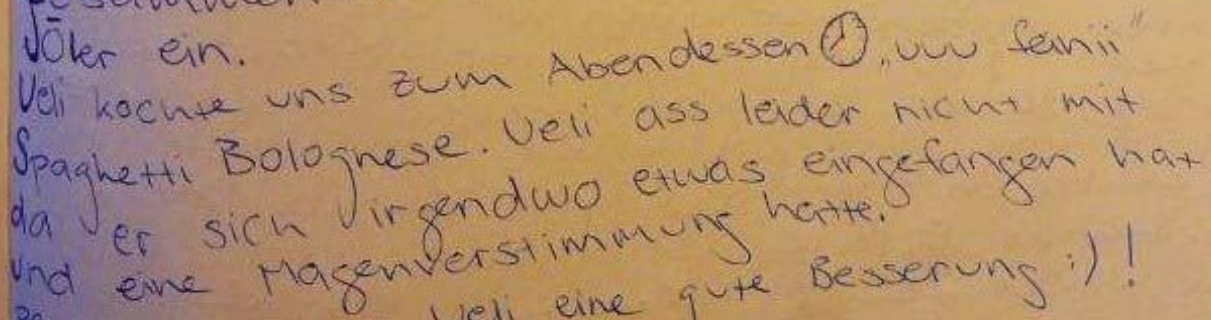 ein.
Ueli kochte uns zum Abendessen „uuu feinii“
Spaghetti Bolognese. Ueli ass leider nicht mit
da er sich irgendwo etwas eingefangen hat
und eine Magenverstimmung hatte.
Ueli eine gute Besserung :) !